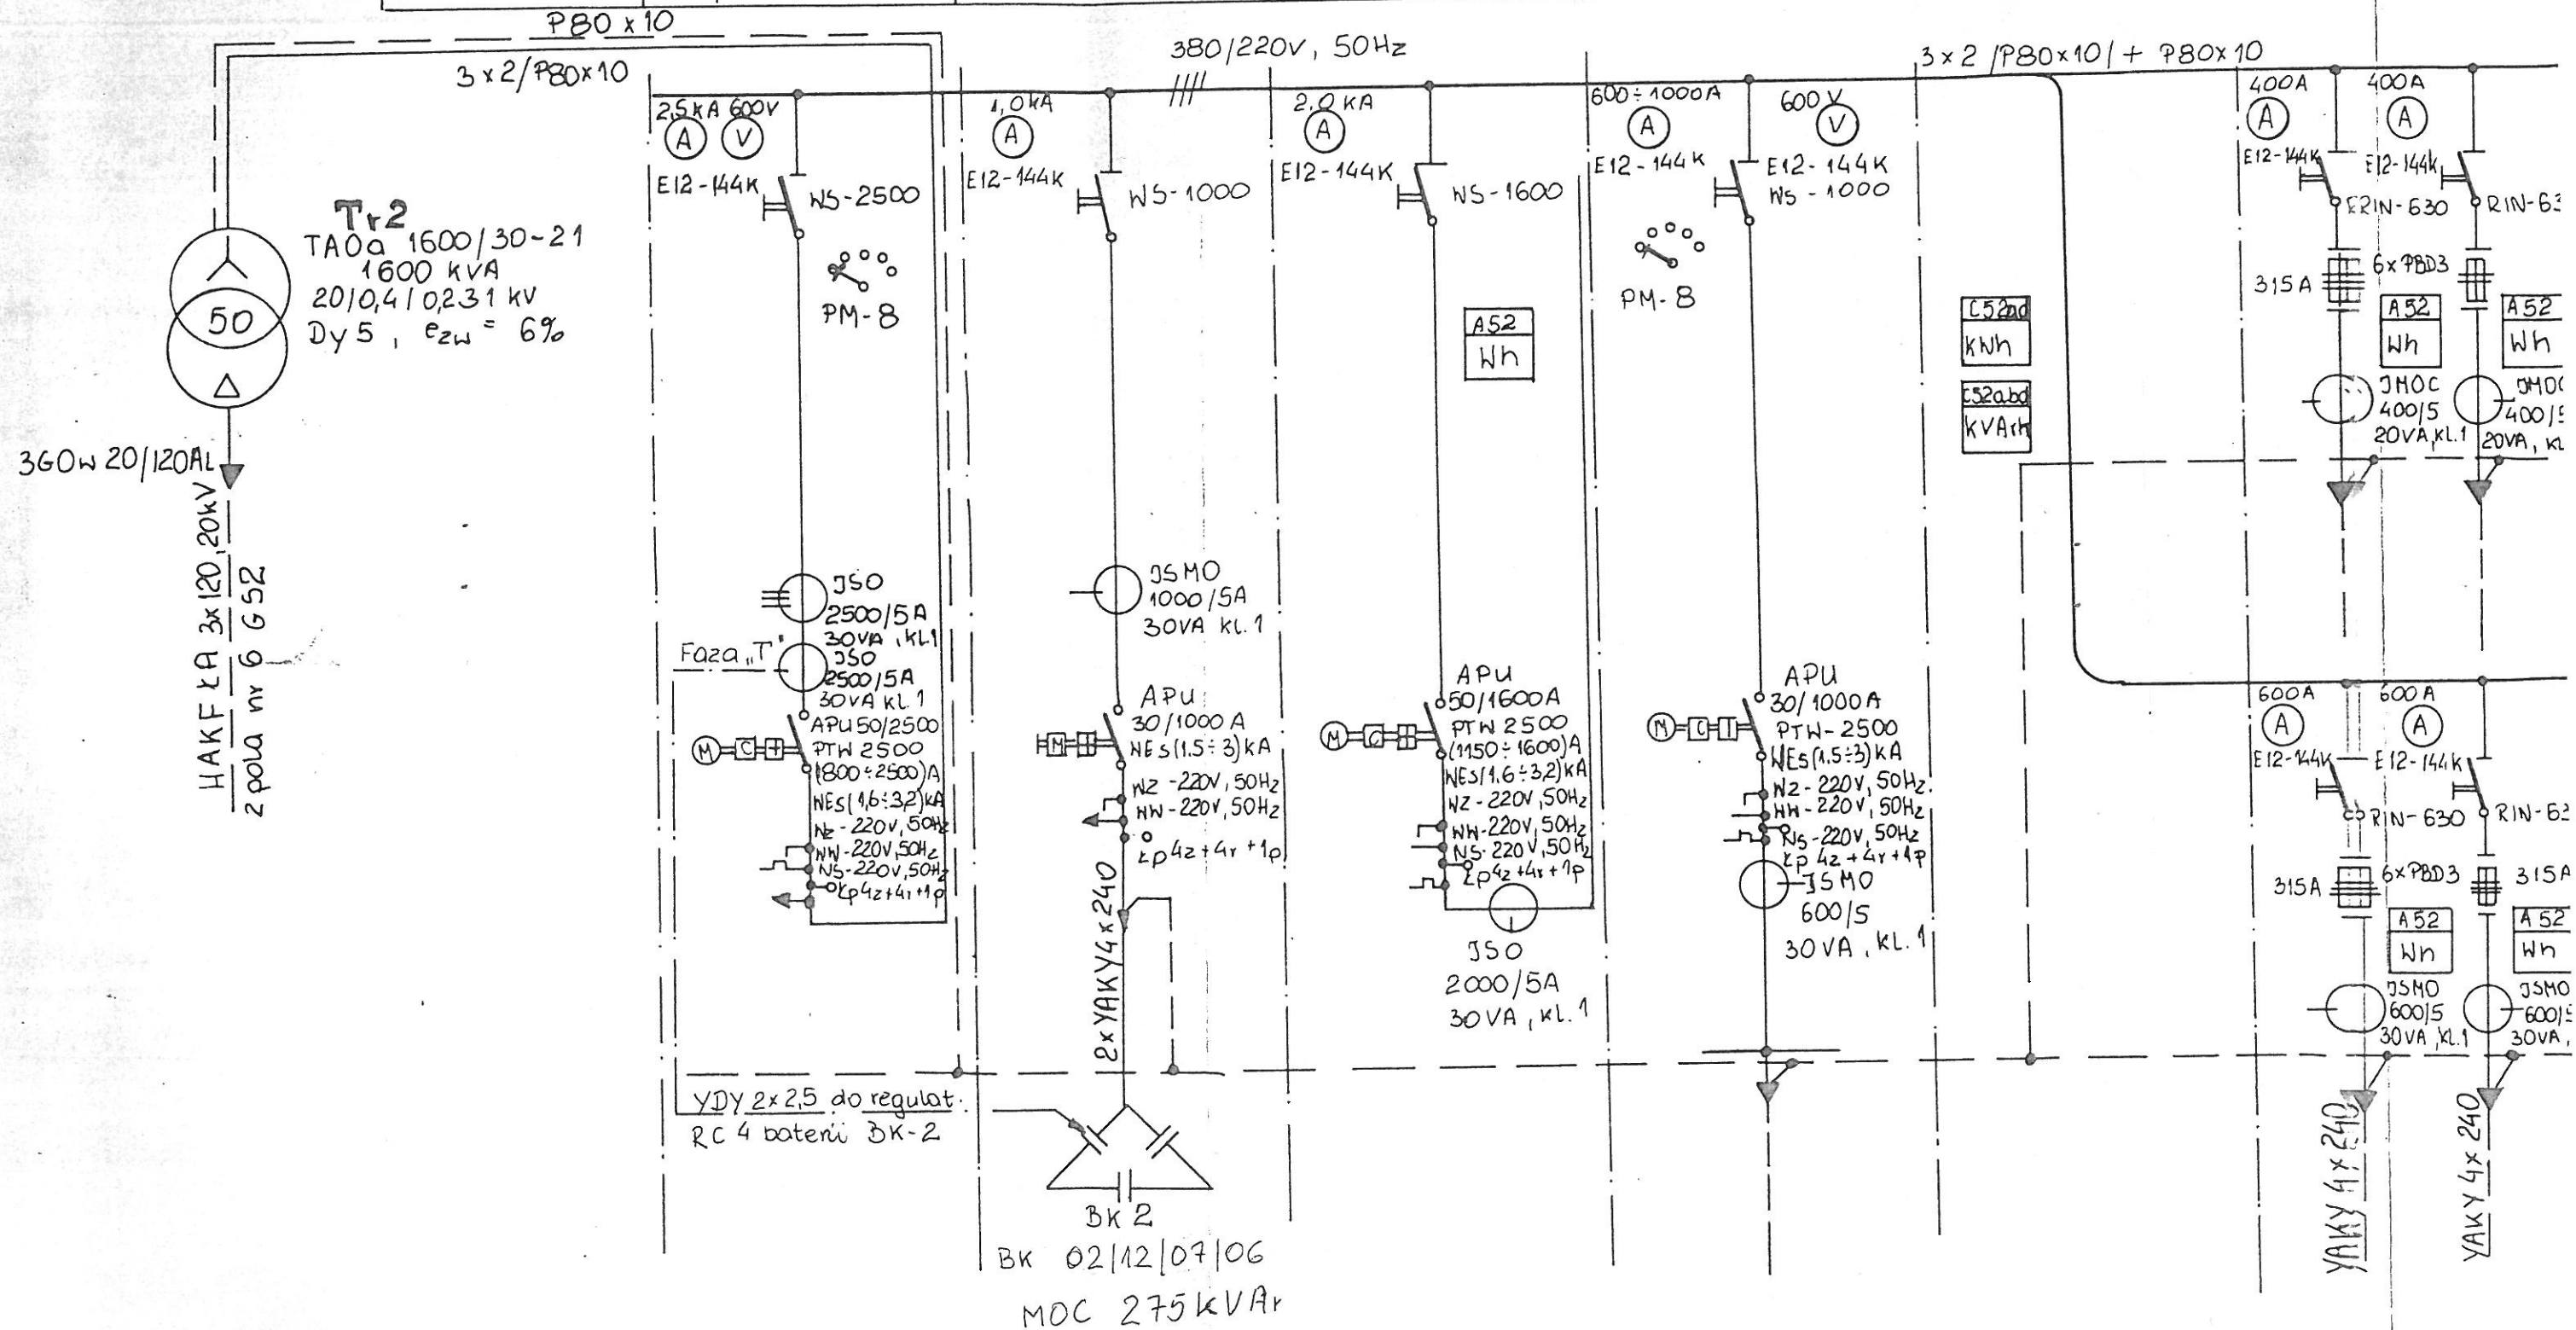 P80 x 10
3 x 2/P80x10
380/220V, 50Hz
3 x 2 /P80x10/ + P80x10
Tr2
TAOa 1600/30-21
1600 KVA
20/0,4/0,231 kV
Dy 5, ezw = 6%
50
3GOw 20/120AL
HAKFtA 3x120,20kV
z pola nr 6 GS2
2,5kA 600V
A V
E12-144K
WS-2500
PM-8
JSO
2500/5A
30VA, KL1
Faza "T"
JSO
2500/5A
30VA KL.1
APU 50/2500
PTW 2500
(800÷2500)A
WES(1,6÷3,2)kA
WZ-220V,50Hz
WW-220V,50Hz
NS-220V,50Hz
Łp4z+4r+1p
M C
YDY 2x2,5 do regulat.
RC 4 baterii BK-2
1,0kA
A
E12-144K
WS-1000
JSMO
1000/5A
30VA KL.1
APU
30/1000 A
WES(1.5÷3)kA
WZ-220V, 50Hz
WW-220V, 50Hz
Łp 4z+4r+1p
M
2xYAKY4x240
BK 2
BK 02/12/07/06
MOC 275kVAr
2,0 KA
A
E12-144K
WS-1600
A52
Wh
APU
50/1600A
PTW 2500
(1150÷1600)A
WES(1,6÷3,2)kA
WZ-220V,50Hz
WW-220V,50Hz
NS-220V,50Hz
Łp4z+4r+1p
M C
JSO
2000/5A
30VA, KL.1
600÷1000A
A
E12-144K
600V
V
E12-144K
WS-1000
PM-8
APU
30/1000A
PTW-2500
WES(1.5÷3)kA
WZ-220V, 50Hz
WW-220V, 50Hz
NS-220V, 50Hz
Łp 4z+4r+1p
M C
JSMO
600/5
30VA, KL.1
C52ad
kWh
C52abd
KVArh
400A
A
E12-144K
RIN-630
315A
6xPBD3
A52
Wh
JMOC
400/5
20VA,KL.1
400A
A
E12-144K
RIN-63
A52
Wh
JMOC
400/5
20VA, KL
600A
A
E12-144K
RIN-630
315A
6xPBD3
A52
Wh
JSMO
600/5
30VA,KL.1
YAKY 4x240
600A
A
E12-144K
RIN-63
315A
A52
Wh
JSMO
600/5
30VA,
YAKY 4x240